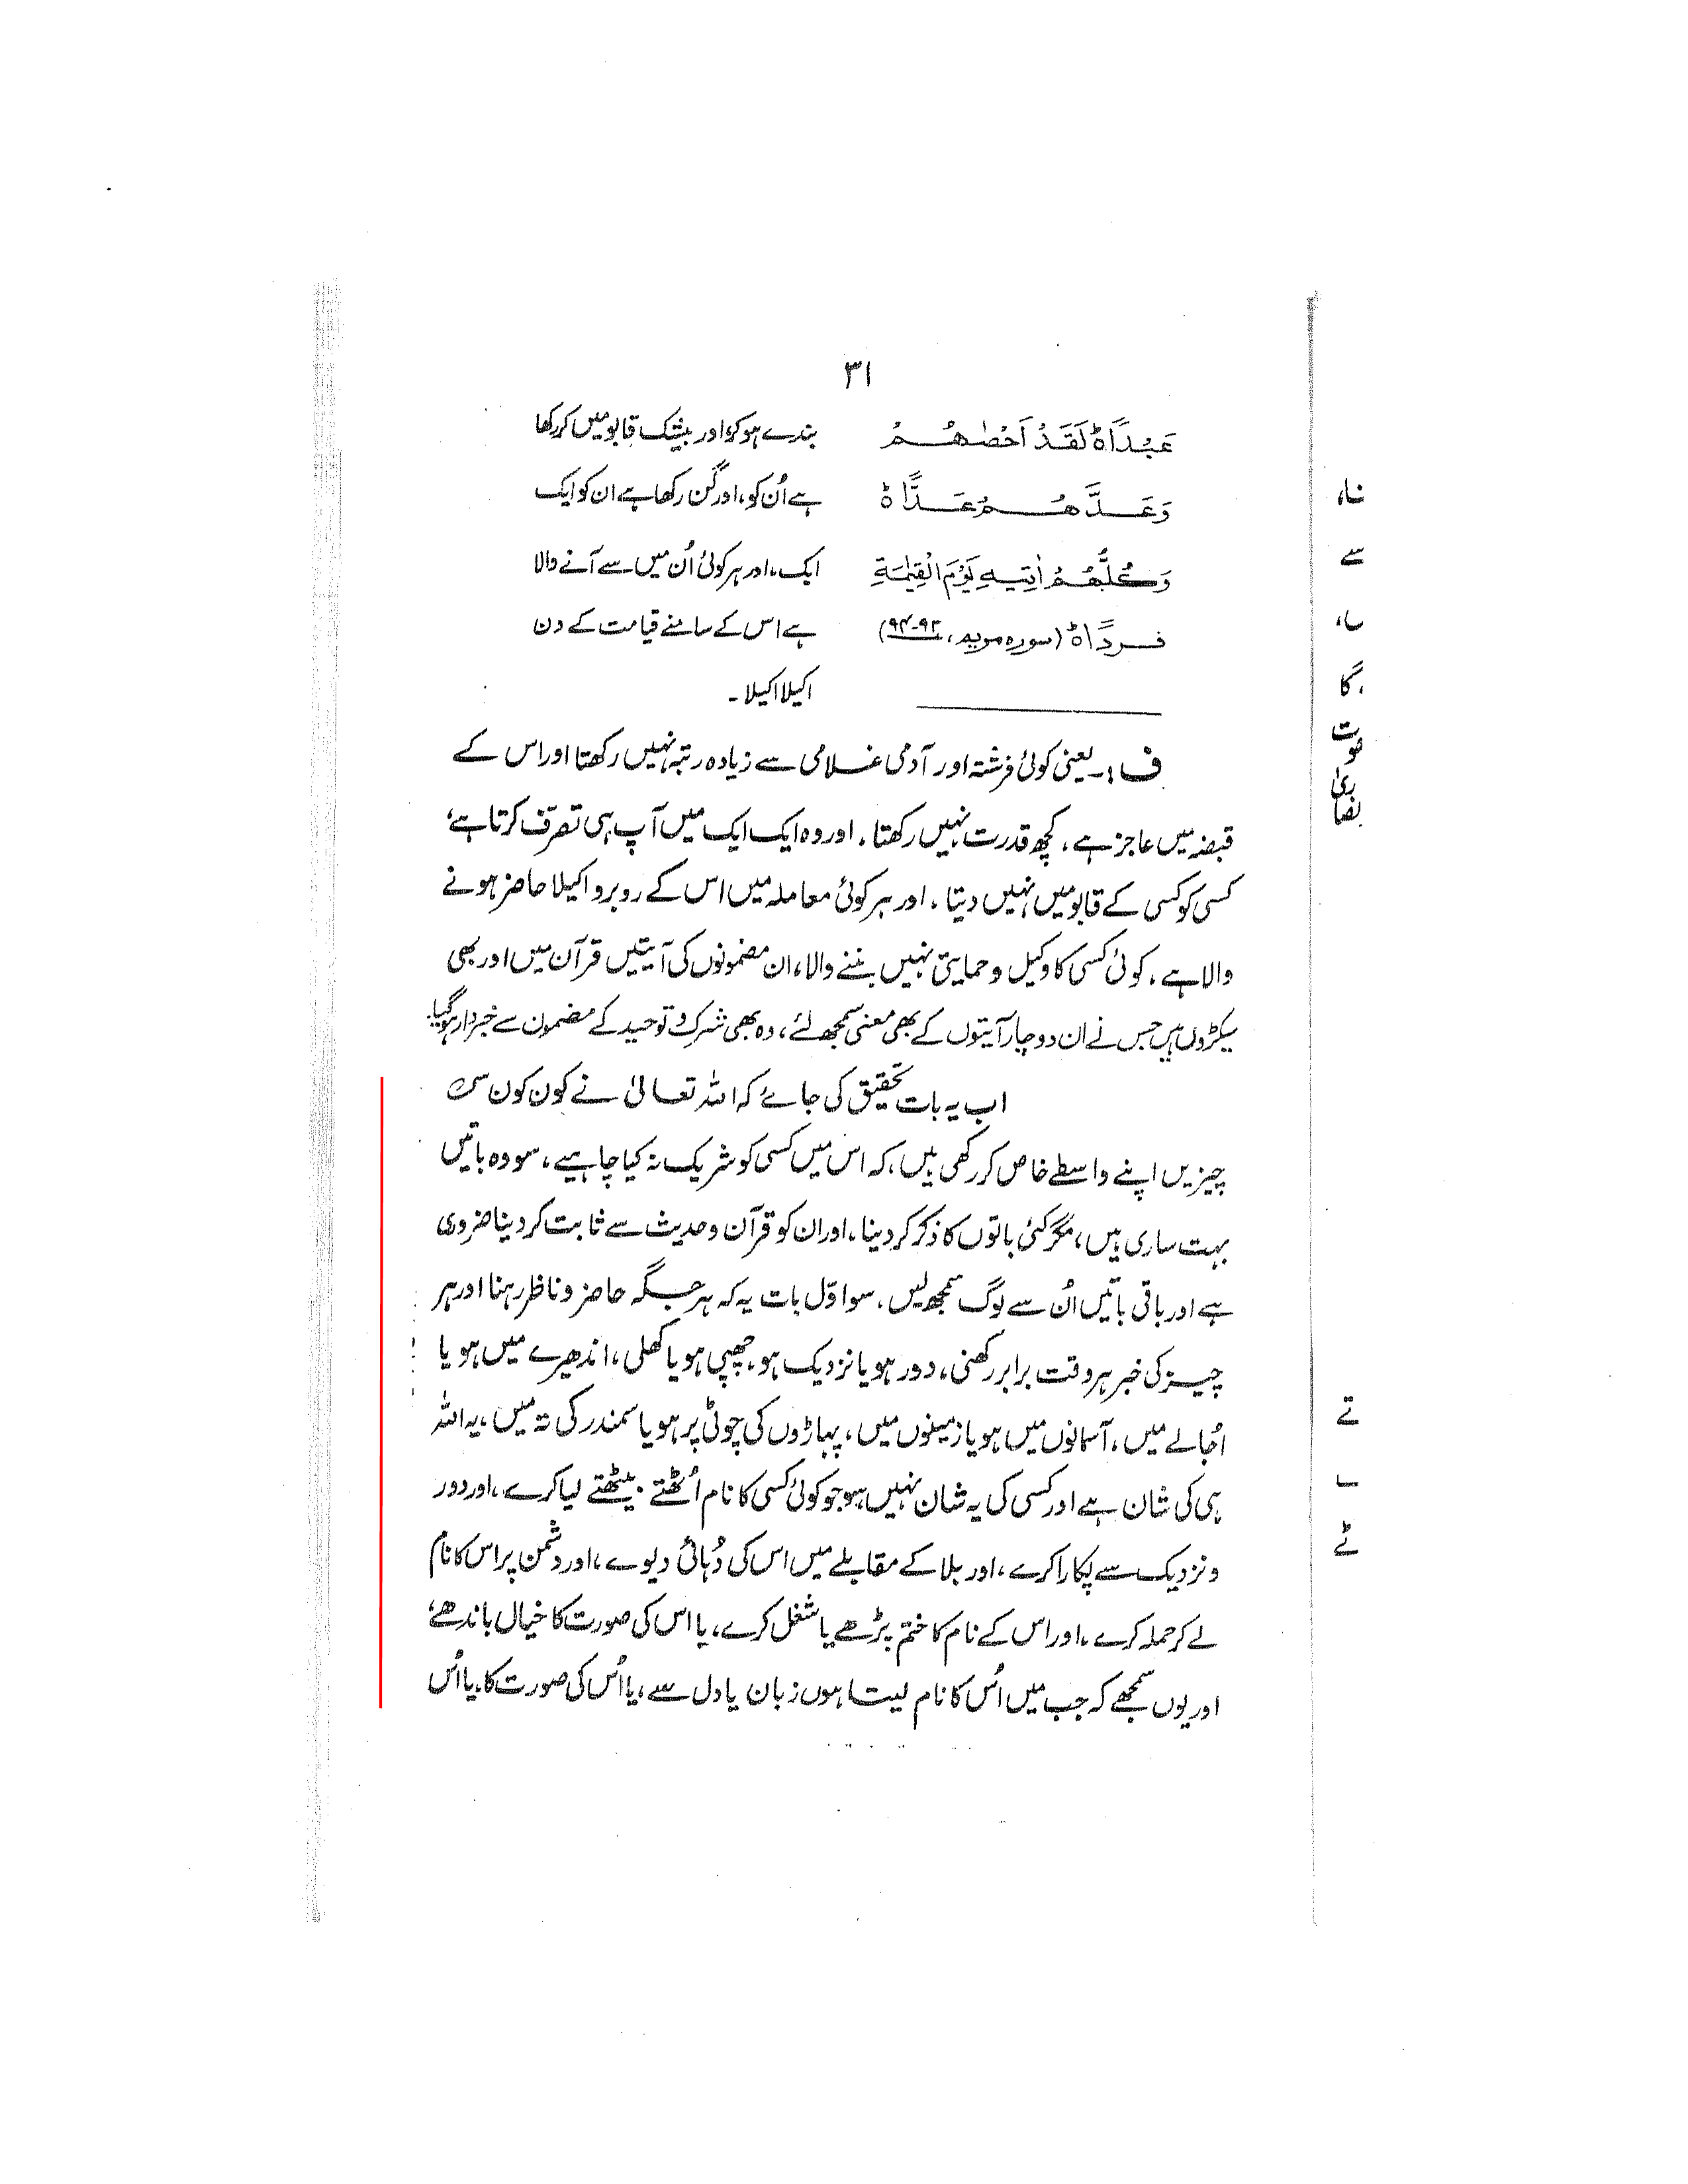 ۳۱
عَبْدًا ہ لَقَدْ اَحْصٰهُمْ
وَعَدَّهُمْ عَدًّا ہ
وَكُلُّهُمْ اٰتِيهِ يَوْمَ الْقِيٰمَةِ
فَرْدًا ہ (سورہ مریم، ۹۳-۹۴)
بندے ہو کر، اور بیشک قابو میں کر رکھا
ہے اُن کو، اور گن رکھا ہے ان کو ایک
ایک، اور ہر کوئی اُن میں سے آنے والا
ہے اس کے سامنے قیامت کے دن
اکیلا اکیلا۔
ف :۔ یعنی کوئی فرشتہ اور آدمی غلامی سے زیادہ رتبہ نہیں رکھتا اور اس کے
قبضہ میں عاجز ہے، کچھ قدرت نہیں رکھتا، اور وہ ایک ایک میں آپ ہی تصرف کرتا ہے،
کسی کو کسی کے قابو میں نہیں دیتا، اور ہر کوئی معاملہ میں اس کے روبرو اکیلا حاضر ہونے
والا ہے، کوئی کسی کا وکیل و حمایتی نہیں بننے والا، ان مضمونوں کی آیتیں قرآن میں اور بھی
سیکڑوں ہیں جس نے ان دو چار آیتوں کے بھی معنی سمجھ لئے، وہ بھی شرک و توحید کے مضمون سے خبردار ہو گیا۔
اب یہ بات تحقیق کی جائے کہ اللہ تعالیٰ نے کون کون سی
چیزیں اپنے واسطے خاص کر رکھی ہیں، کہ اس میں کسی کو شریک نہ کیا چاہیے، سو وہ باتیں
بہت ساری ہیں، مگر کئی باتوں کا ذکر کر دینا، اور ان کو قرآن و حدیث سے ثابت کر دینا ضروری
ہے اور باقی باتیں اُن سے لوگ سمجھ لیں، سو اوّل بات یہ کہ ہر جگہ حاضر و ناظر رہنا اور ہر
چیز کی خبر ہر وقت برابر رکھنی، دور ہو یا نزدیک ہو، چھپی ہو یا کھلی، اندھیرے میں ہو یا
اُجالے میں، آسمانوں میں ہو یا زمینوں میں، پہاڑوں کی چوٹی پر ہو یا سمندر کی تہ میں، یہ اللہ
ہی کی شان ہے اور کسی کی یہ شان نہیں ہو جو کوئی کسی کا نام اُٹھتے بیٹھتے لیا کرے، اور دور
و نزدیک سے پکارا کرے، اور بلا کے مقابلے میں اس کی دُہائی دیوے، اور دشمن پر اس کا نام
لے کر حملہ کرے، اور اس کے نام کا ختم پڑھے یا شغل کرے، یا اس کی صورت کا خیال باندھے،
اور یوں سمجھے کہ جب میں اُس کا نام لیتا ہوں زبان یا دل سے، یا اُس کی صورت کا، یا اُس